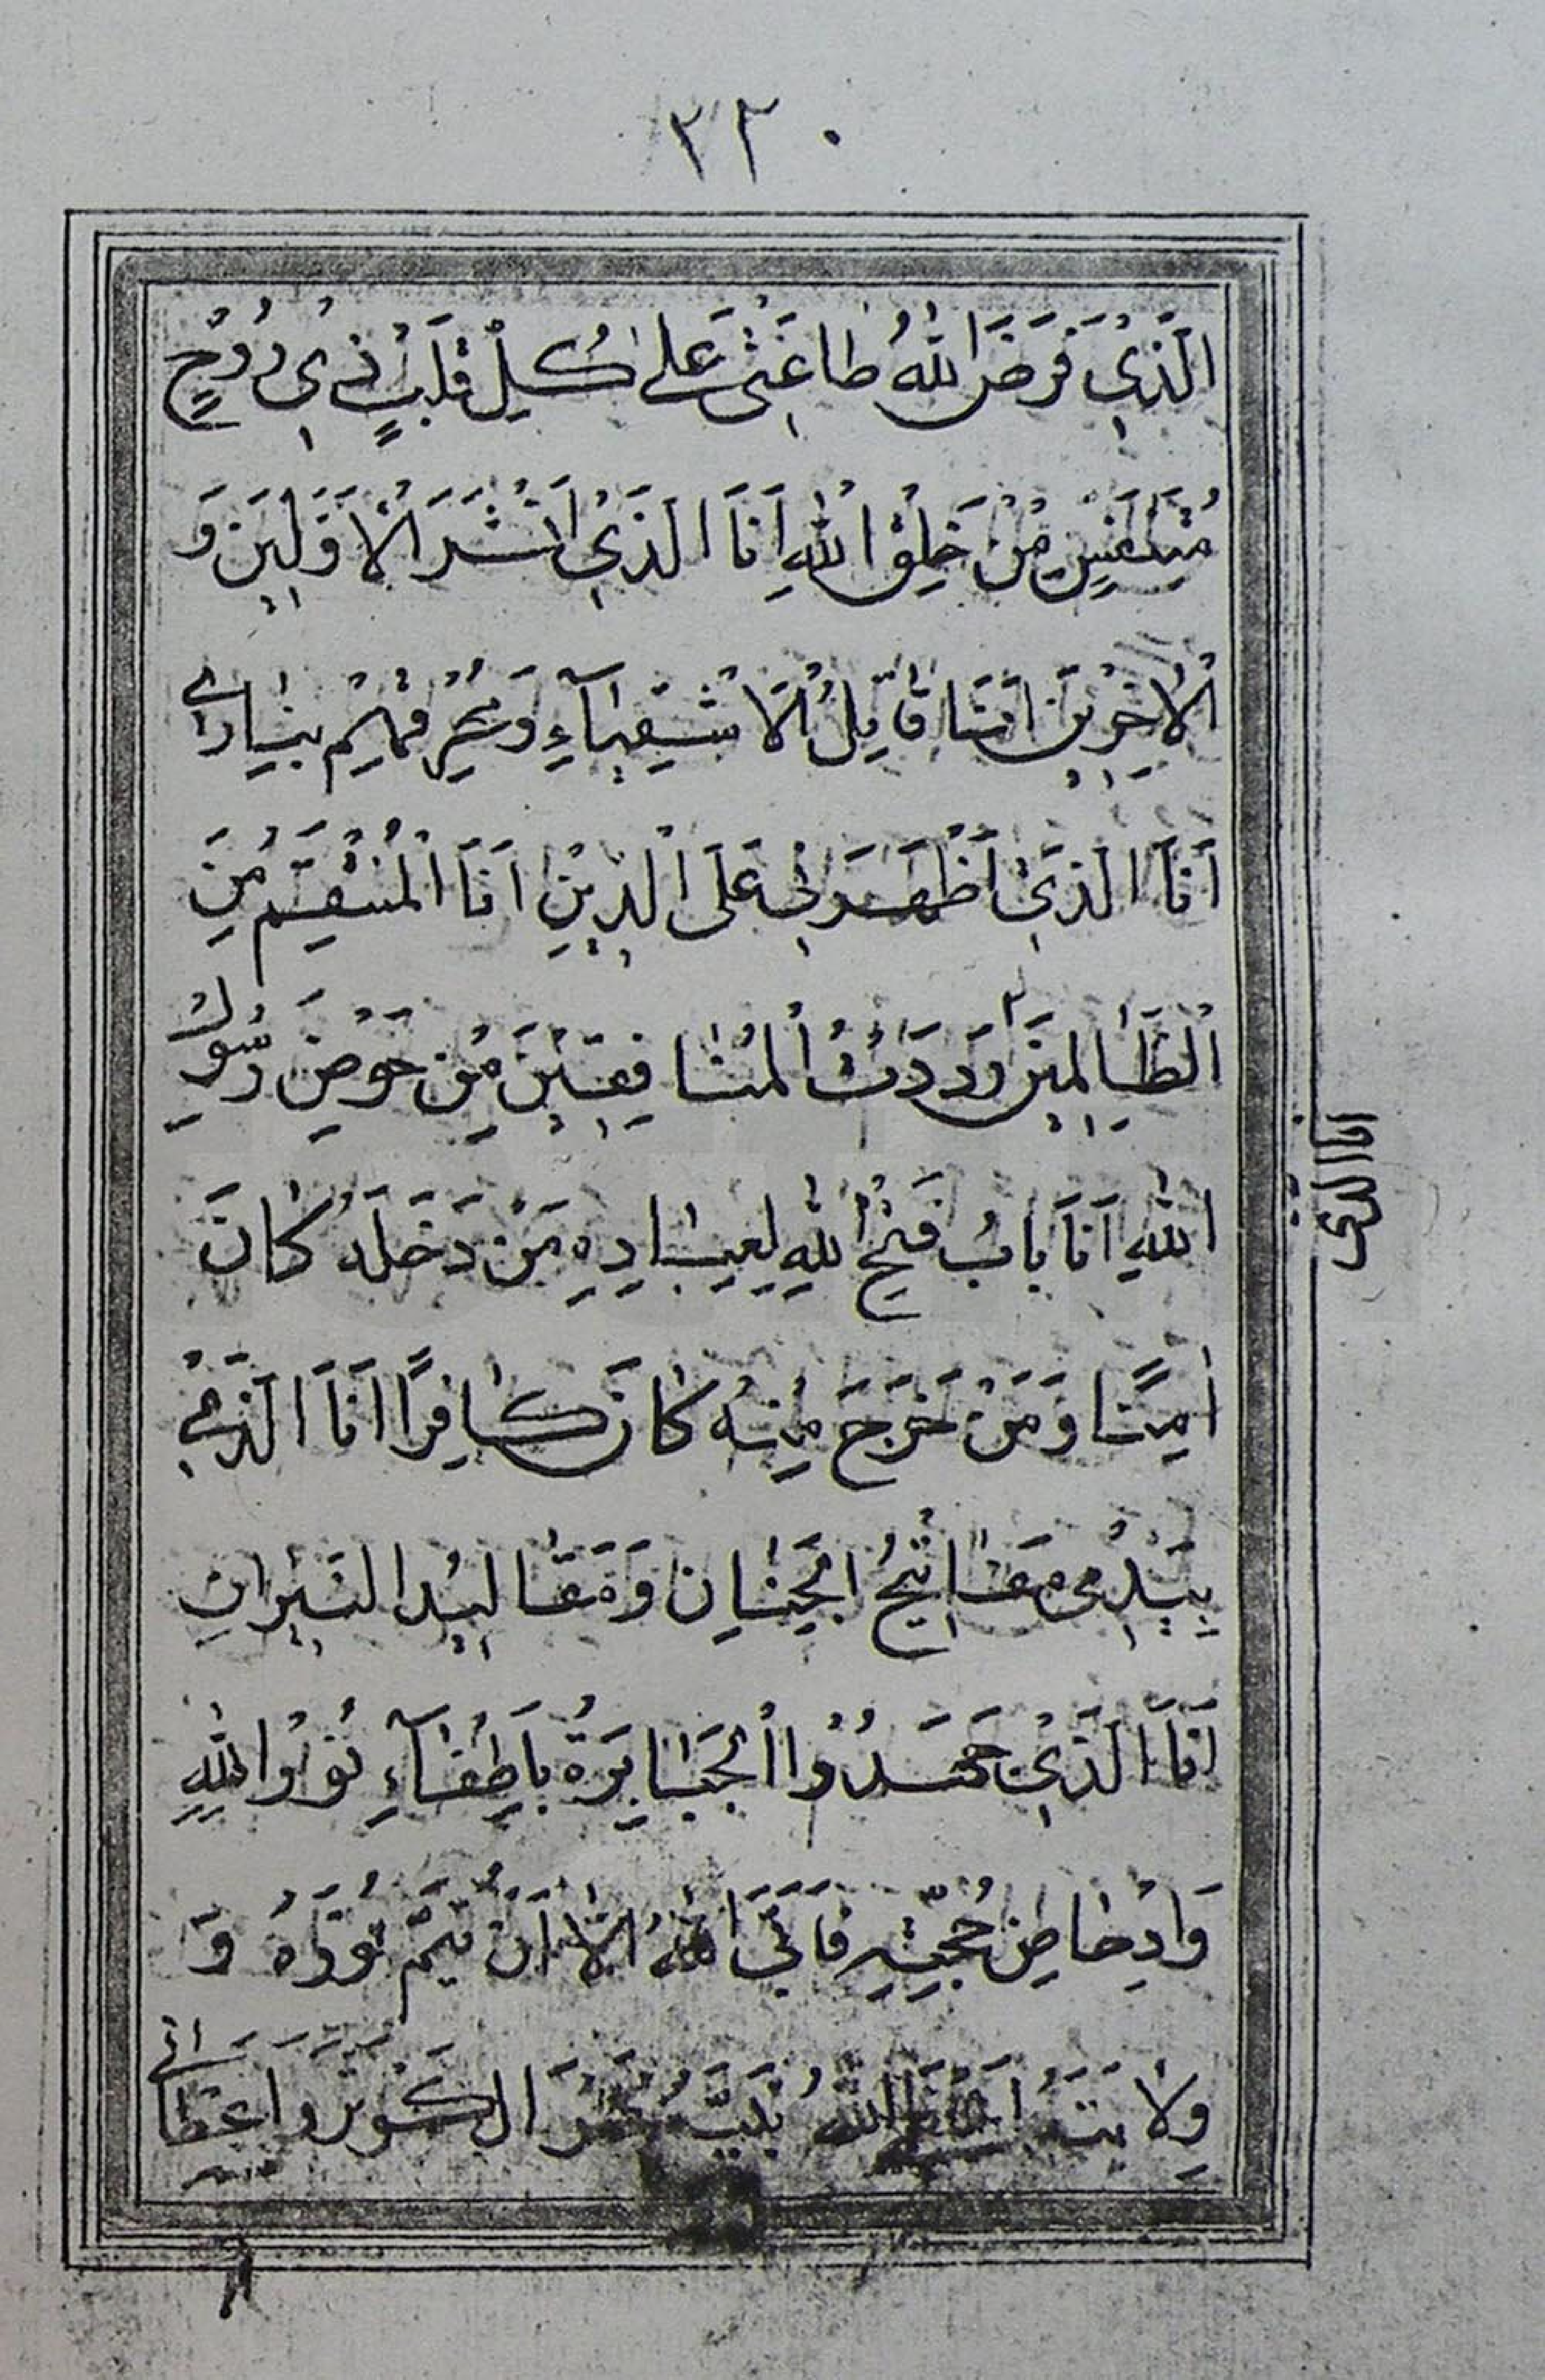 ٢٣٠
الَّذِي فَرَضَ اللهُ طَاعَتِي عَلَى كُلِّ قَلْبٍ ذِي رُوحٍ
مُتَنَفِّسٍ مِنْ خَلْقِ اللهِ اَنَا الَّذِي اَنْشُرُ الْاَوَّلِينَ وَ
الْاٰخِرِينَ اَنَا قَاتِلُ الْاَشْقِيَاۤءِ وَ بِنَارِي
اَنَا الَّذِي اَظْهَرَنِي عَلَى الدِّينِ اَنَا الْمُنْتَقِمُ مِنَ
الظَّالِمِينَ رَدَدْتُ الْمُنَافِقِينَ مِنْ حَوْضِ رَسُولِ
اللهِ اَنَا بَابُ فَتَحَ اللهِ لِعِبَادِهِ مَنْ دَخَلَهُ كَانَ
اٰمِنًا وَمَنْ خَرَجَ مِنْهُ كَانَ كَافِرًا اَنَا الَّذِي
بِيَدِي مَفَاتِيحُ الْجِنَانِ وَمَقَالِيدُ النِّيرَانِ
اَنَا الَّذِي الْجَبَابِرَةُ بِاِطْفَاۤءِ نُورِ اللهِ
وَاِدْحَاضِ حُجَّتِهِ فَاَبَى اللهُ اِلَّا اَنْ يُتِمَّ نُورَهُ وَ
وِلَايَتَهُ اللهُ نَبِيَّهُ نَهَرَ الْكَوْثَرِ وَاَعْطَانِي
اَنَا الَّذِي